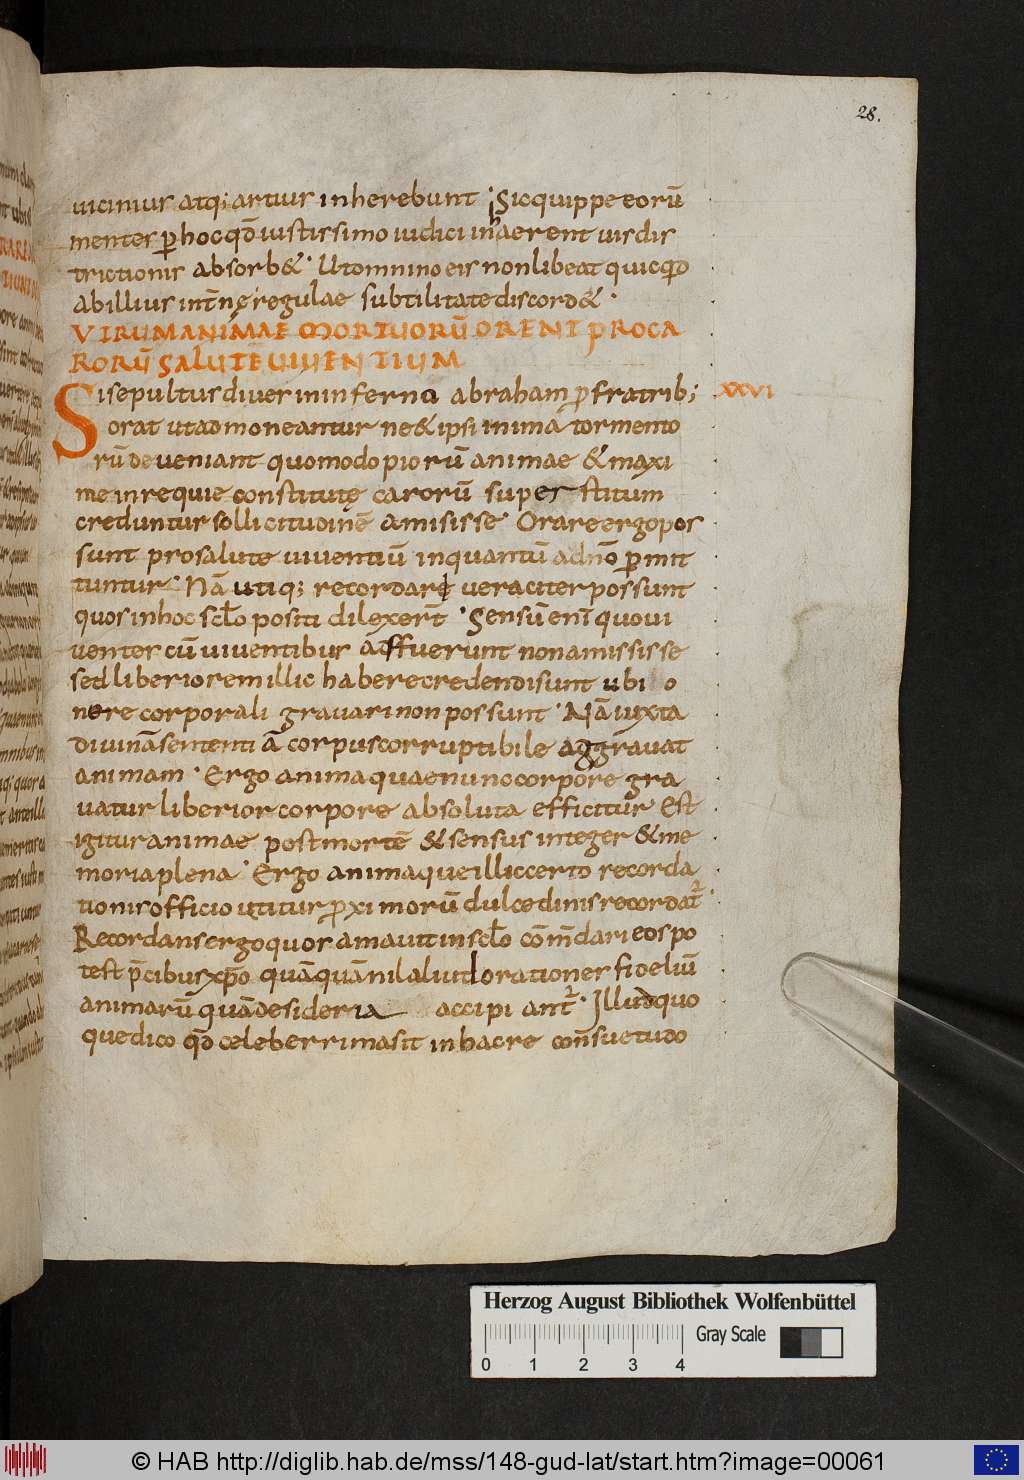 28.
uicinius atq; artius inherebunt Sicquippe eorū
mentes p hoc qđ iustissimo iudici inhaerent uis dis
trictionis absorb& · Ut omnino eis non libeat quicqđ
ab illius int̄nę regulae subtilitate discord& ·
UTRUM ANIMAE MORTUORŪ ORENT PRO CA
RORŪ SALUTE VIVENTIUM
XXVI
Si sepultus diues in inferno abraham p fratrib;
orat ut admoneantur ne & ipsi in ima tormento
rū deueniant quomodo piorū animae & maxi
me in requie constitutę carorū superstitum
creduntur sollicitudinē amisisse · Orare ergo pos
sunt pro salute uiuentiū inquantū a dnō pmit
tuntur · Nā utiq; recordare ueraciter possunt
quos in hoc sclo positi dilexer̄ · Sensū eni quo ui
uentes cū uiuentibus affuerunt non amississe
sed liberiorem illic habere credendi sunt ubi o
nere corporali grauari non possunt · Nā iuxta
diuinā sententiā corpus corruptibile aggrauat
animam · Ergo anima quae nunc corpore gra
uatur liberior corpore absoluta efficitur Est
igitur animae post mortē & sensus integer & me
moria plena · Ergo anima que illic certo recorda
tionis officio utitur pximorū dulcedinis recordat̄ ·
Recordans ergo quos amauit in sclo cōm̄dari eos po
test p̄cibus xp̄o quāquā nil aliud orationes fideliū
animarū quā desideria accipiant̄ · Illud quo
que dico qđ celeberrima sit in hac re consuetudo
Herzog August Bibliothek Wolfenbüttel
Gray Scale
0 1 2 3 4
© HAB http://diglib.hab.de/mss/148-gud-lat/start.htm?image=00061